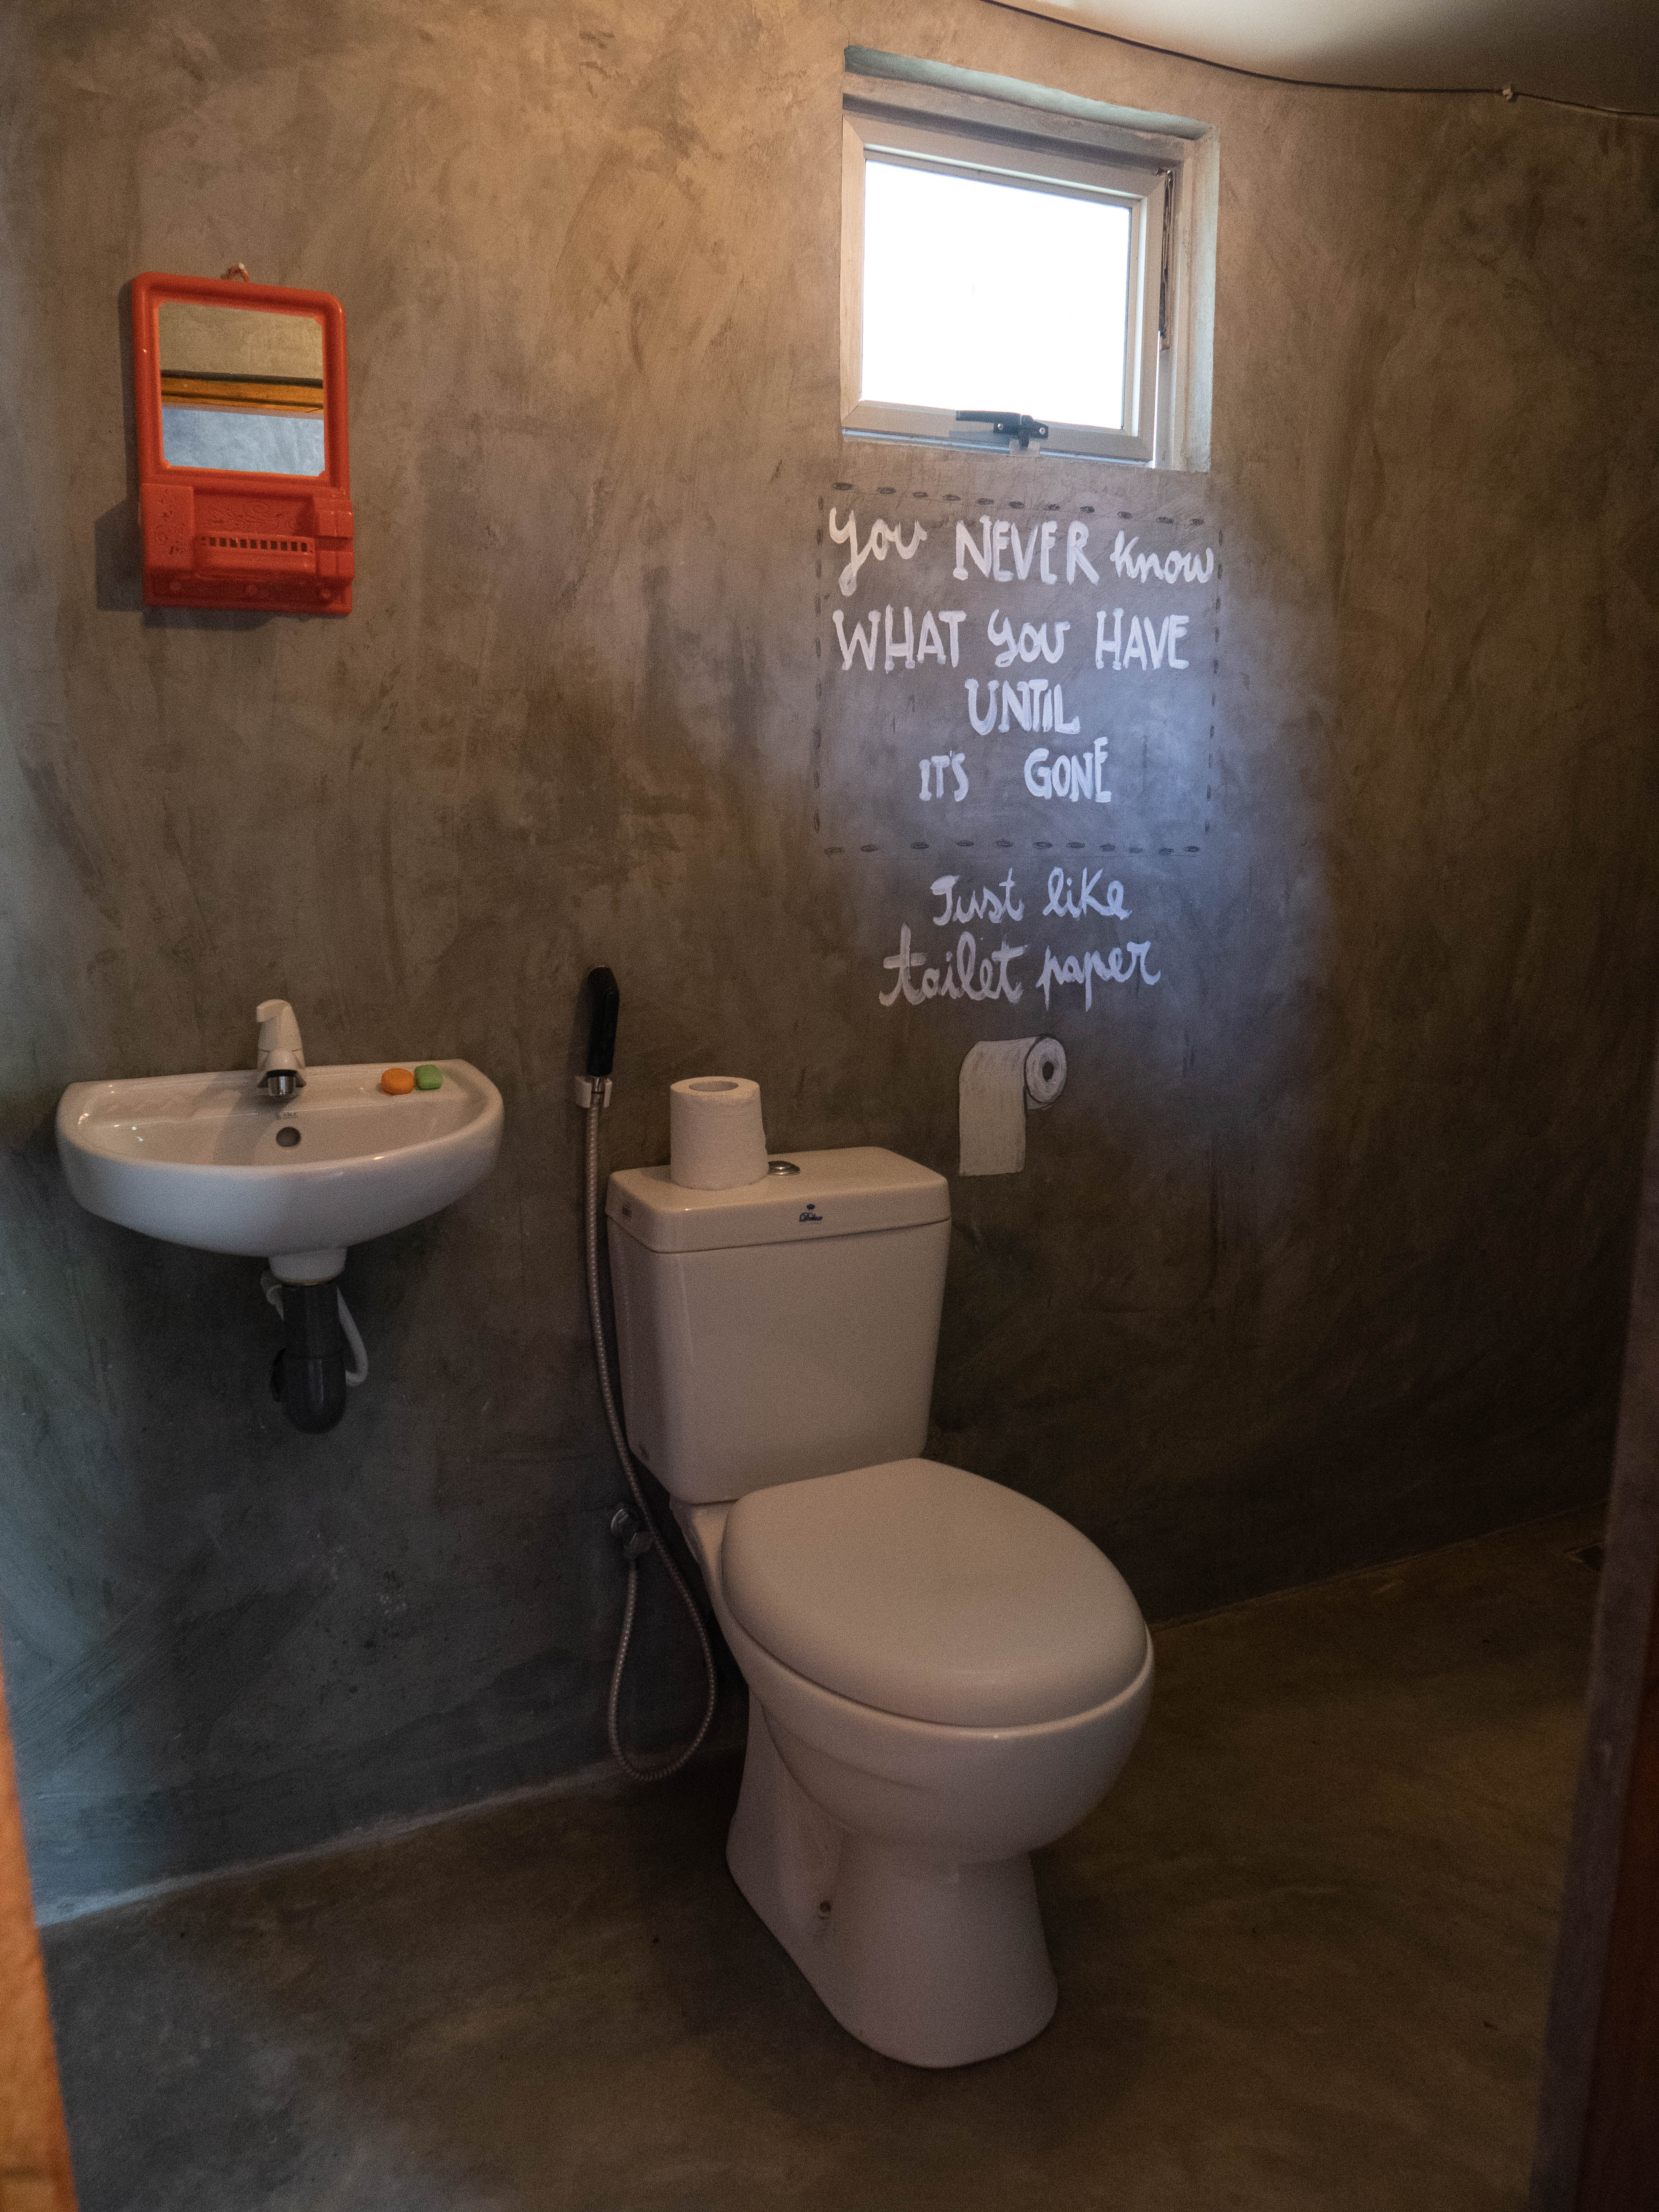 You NEVER Know
WHAT You HAVE
UNTIL
IT'S GONE
Just like
toilet paper